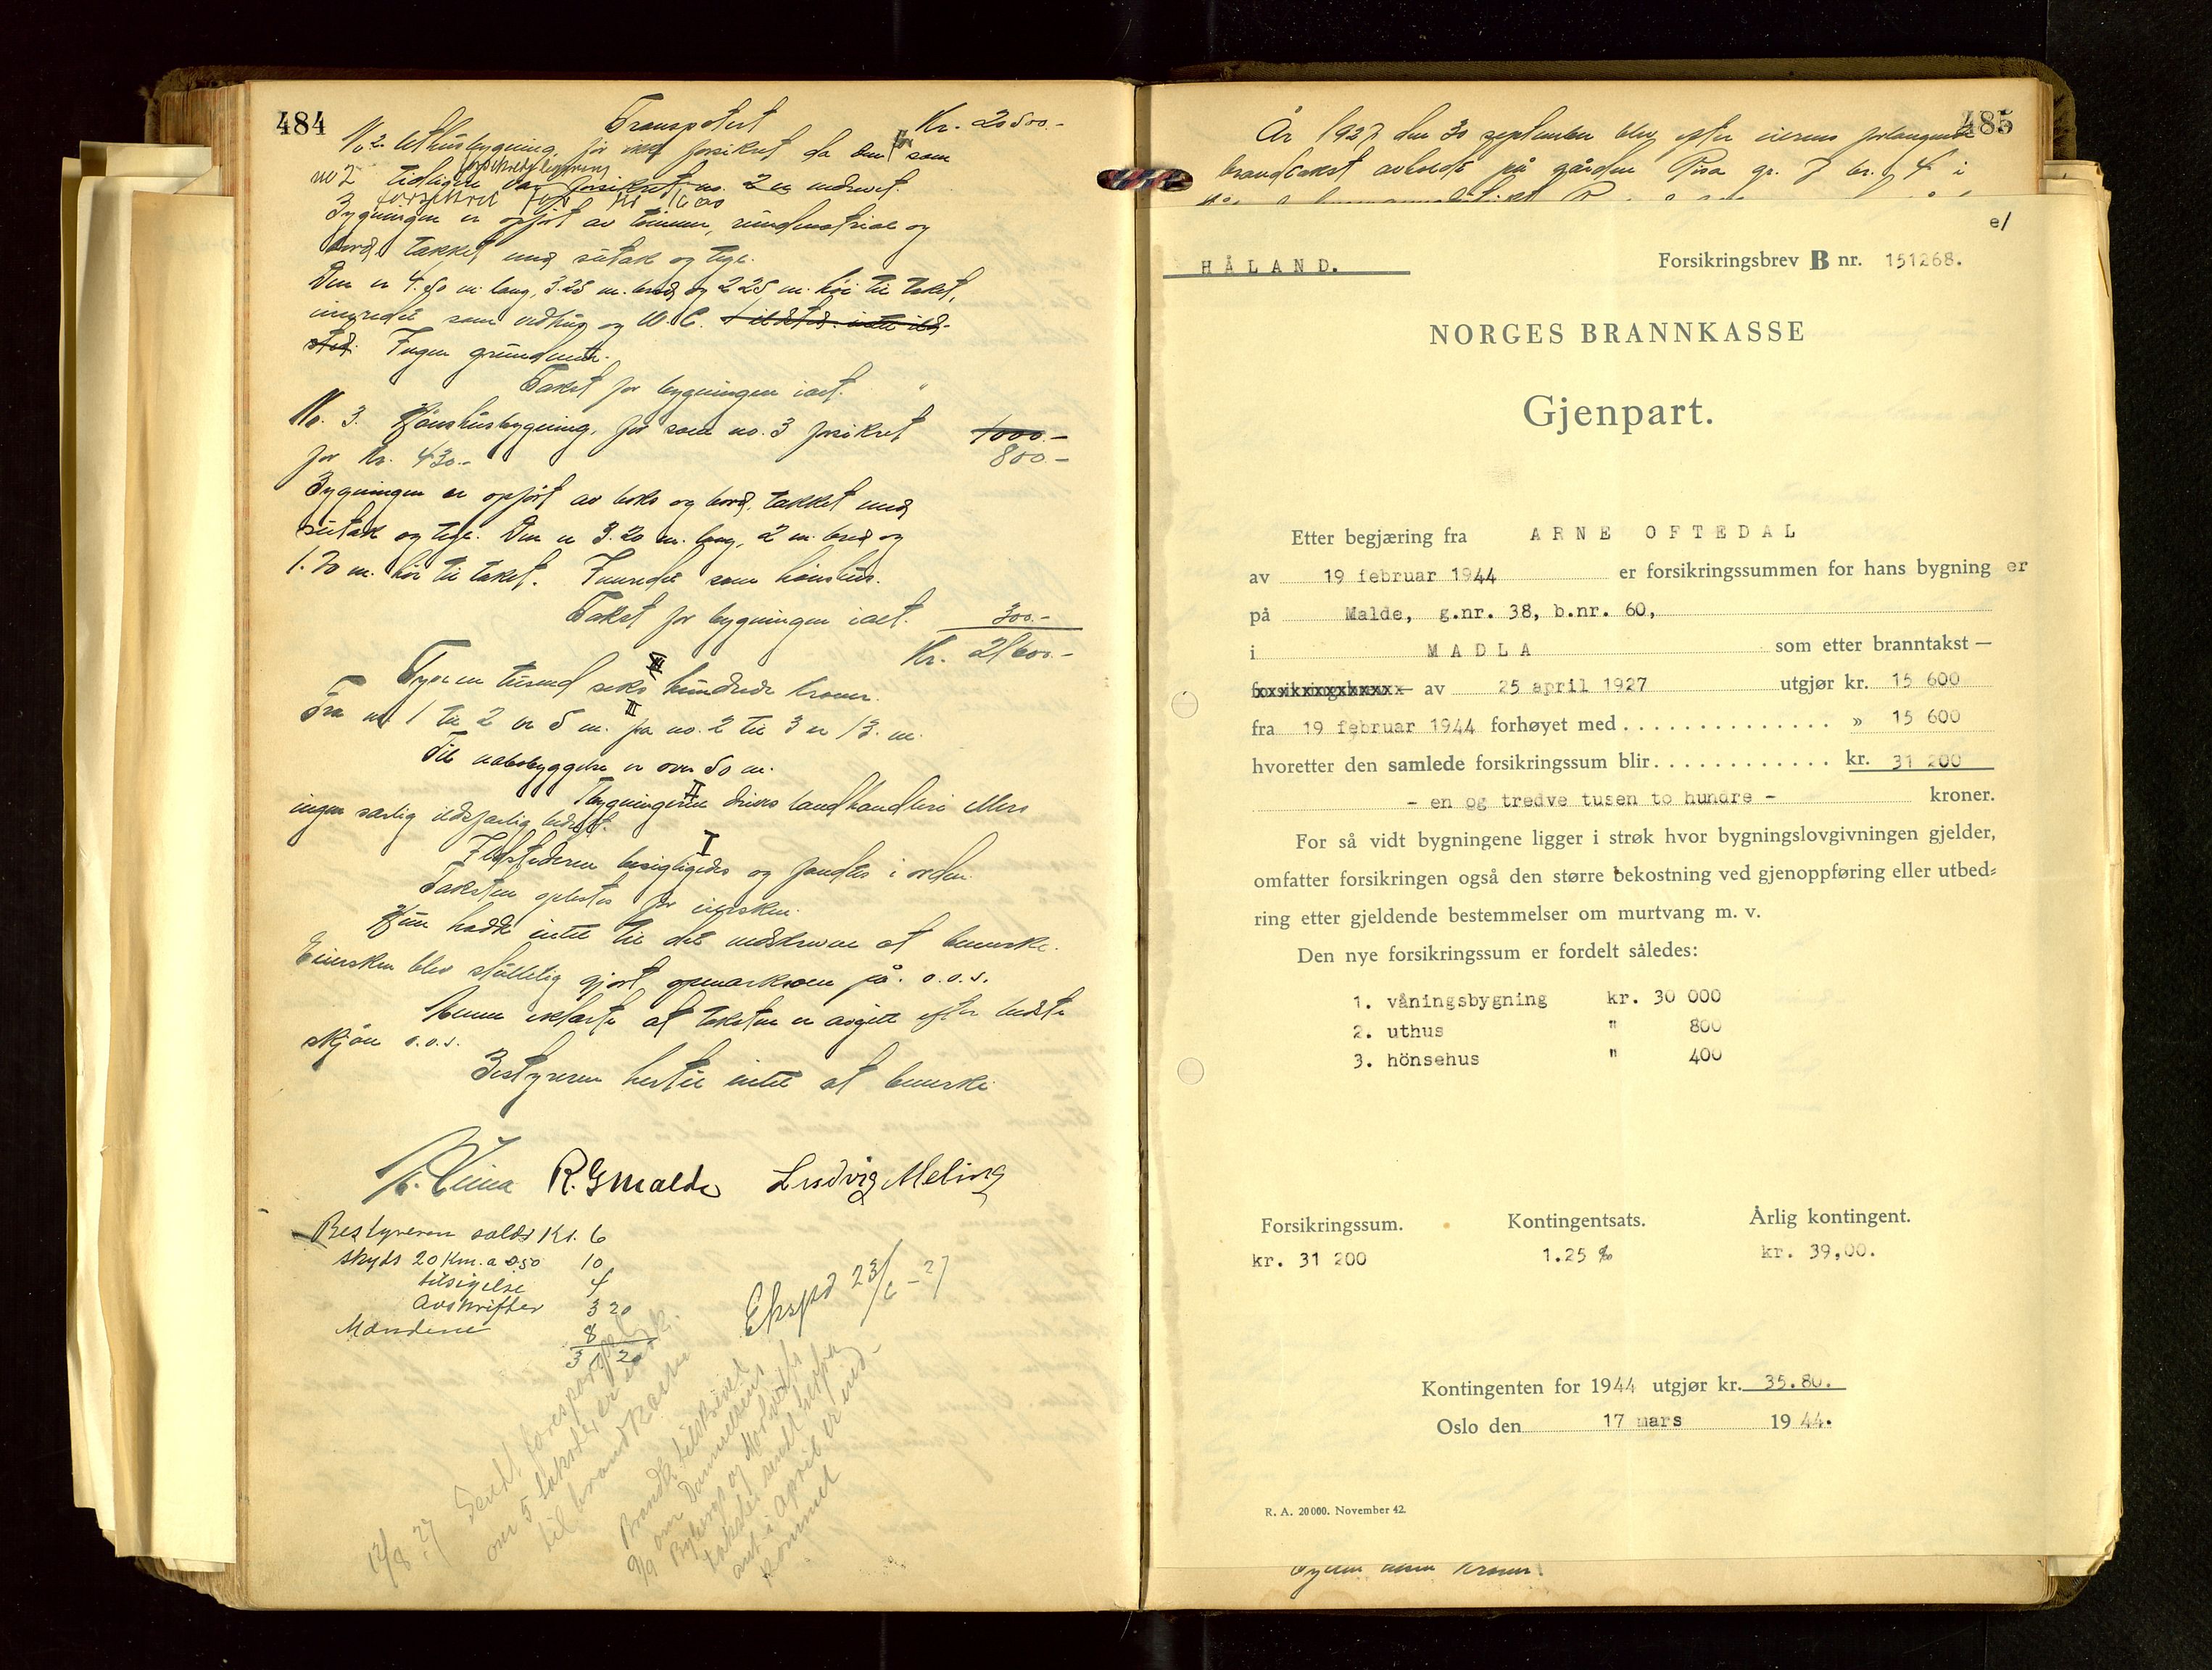 484
Transportert Kr. 20500.-
No 2. Uthusbygning, før ikke forsikret da den som
no 2 tidligere var forsikret no. 2 er nedrevet.
forsikret for Kr 600
Bygningen er opført av tømmer, bindematrial og
bord, tækket med sutak og tegl.
Den er 4.50 m. lang, 3.25 m. bred og 2.25 m. høi til taket,
innredet som vedhus og W.C.
Ingen grundmur.
Takst for bygningen ialt. "
No. 3. Hønshusbygning, før som no. 3 forsikret 1000.-
for Kr. 430.- 800.-
Bygningen er opført av boks og bord, tækket med
sutak og tegl. Den er 3.20 m. lang, 2 m. bred og
1.70 m. høi til taket. Innredet som hønshus.
Takst for bygningen ialt. 300.-
Kr. 21600.-
Tyve en tusend seks hundrede kroner.
Fra no. 1 til 2 er 5 m. fra no. 2 til 3 er 13 m.
Til nabobyggelse er over 50 m.
I bygningerne drives landhandleri ellers
ingen særlig ildsfarlig bedrift.
Ildstederne besigtigedes og fandtes i orden.
Taksten oplæstes for eiersken.
Hun hadde intet til det nedskrevne at bemerke.
Eiersken blev skriftlig gjort opmerksom på o.s.s.
erklærte at taksten er avgitt efter bedste
skjøn o.s.s.
Bestyreren hertil intet at bemerke
R. G Malde Ludvig Meling
Bestyreren solds Kr. 6
Skyds 20 Km. a 0.50 10
bilsigelse 4
Avskrifter 3 20
Mændene 8
31 20
Ekspd 23/6 - 27
12/8 27 Sendt forespørgsel
om 5 takster er inds.
til brandkasse
Brandk. tilskrevet
9/9 om Dannelsens
Bygnings og
takster sendt herfra
ant. i April er ned-
kommet
485
År 1927 den 30 september blev efter eierens forlangende
brandtakst avholdt på gården Risa gr. 7 br. 4 i
e/
HÅLAND.
Forsikringsbrev B nr. 151268.
NORGES BRANNKASSE
Gjenpart.
Etter begjæring fra ARNE OFTEDAL
av 19 februar 1944 er forsikringssummen for hans bygning er
på Malde, g.nr. 38, b.nr. 60,
i MADLA som etter branntakst —
av 25 april 1927 utgjør kr. 15 600
fra 19 februar 1944 forhøyet med . . . . . . . . . . . . . . . » 15 600
hvoretter den samlede forsikringssum blir . . . . . . . . . . . . . kr. 31 200
- en og tredve tusen to hundre - kroner.
For så vidt bygningene ligger i strøk hvor bygningslovgivningen gjelder,
omfatter forsikringen også den større bekostning ved gjenoppføring eller utbed-
ring etter gjeldende bestemmelser om murtvang m. v.
Den nye forsikringssum er fordelt således:
1. våningsbygning kr. 30 000
2. uthus " 800
3. hönsehus " 400
Forsikringssum. Kontingentsats. Årlig kontingent.
kr. 31 200 1.25 ‰ kr. 39,00.
Kontingenten for 1944 utgjør kr. 35.80.
Oslo den 17 mars 1944.
R. A. 20 000. November 42.